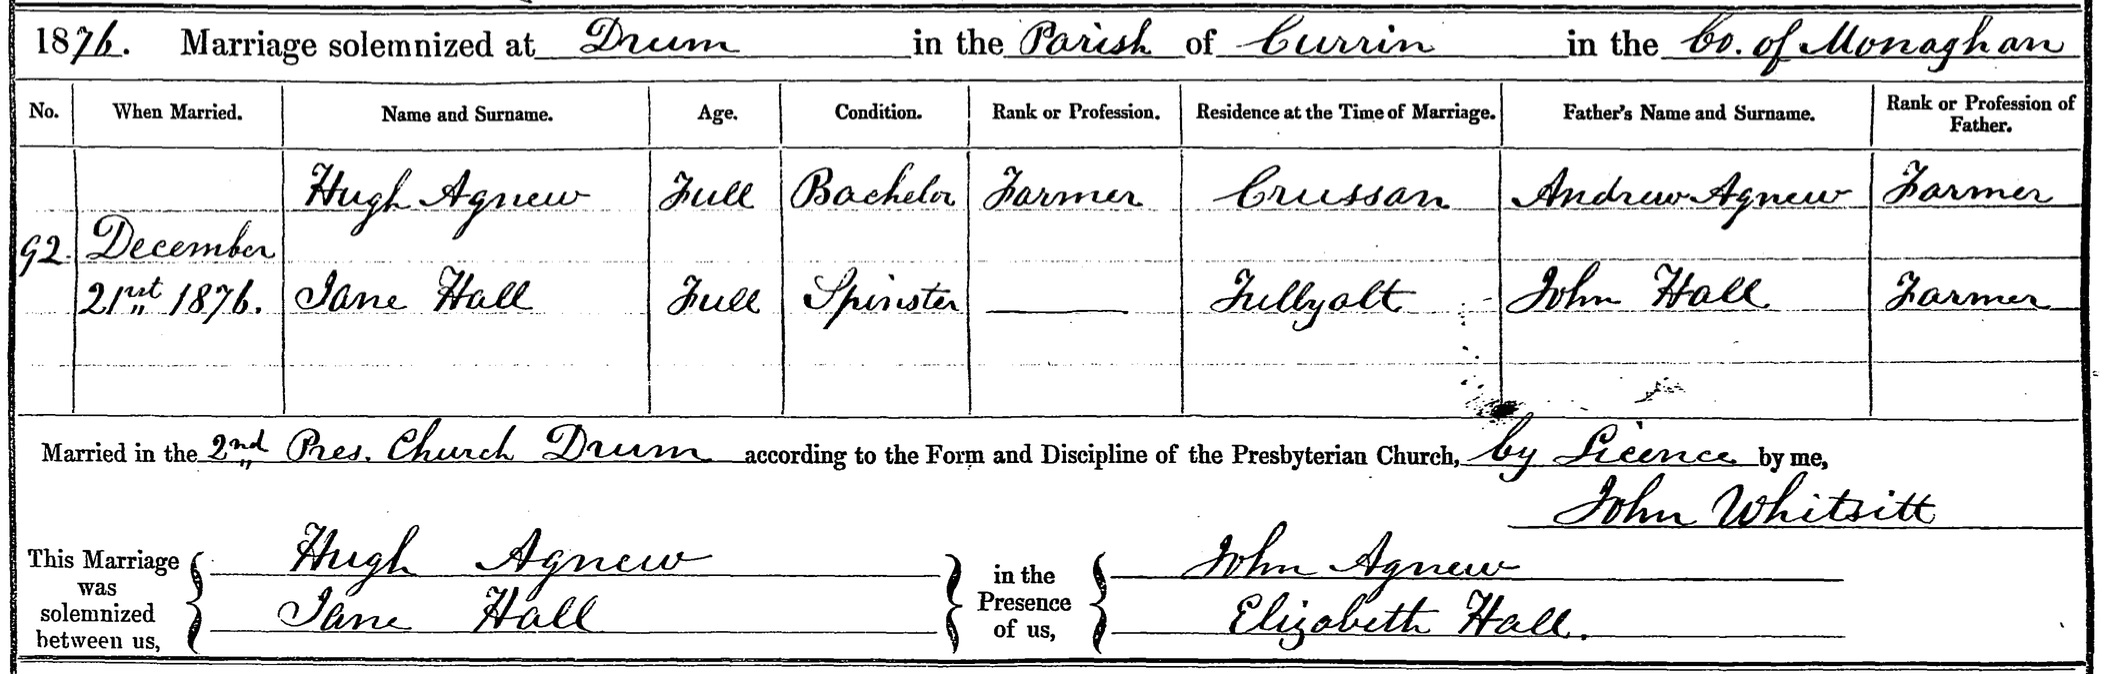 1876. Marriage solemnized at Drum in the Parish of Currin in the Co. of Monaghan
No. When Married. Name and Surname. Age. Condition. Rank or Profession. Residence at the Time of Marriage. Father's Name and Surname. Rank or Profession of Father.
Hugh Agnew Full Bachelor Farmer Crussan Andrew Agnew Farmer
92. December
21st 1876. Jane Hall Full Spinster Tullyalt John Hall Farmer
Married in the 2nd Pres. Church Drum according to the Form and Discipline of the Presbyterian Church, by Licence by me,
John Whitsitt
This Marriage was solemnized between us, Hugh Agnew Jane Hall in the Presence of us, John Agnew Elizabeth Hall.